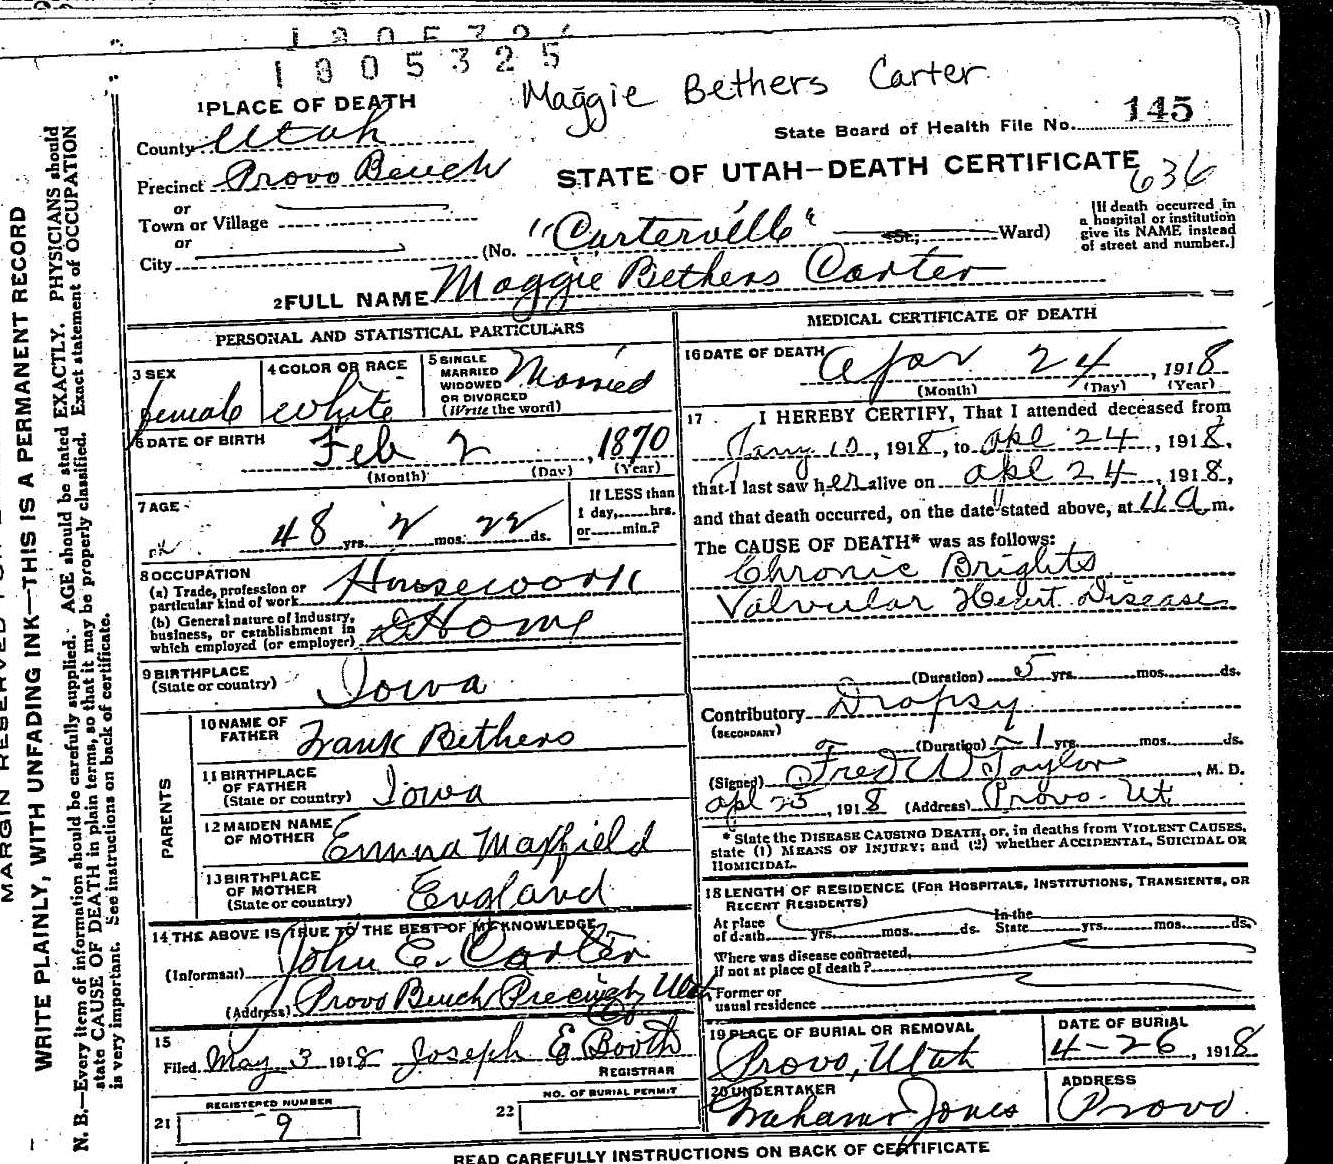 1805325
Maggie Bethers Carter
1 PLACE OF DEATH
County Utah
State Board of Health File No. 145
Precinct Provo Bench
STATE OF UTAH—DEATH CERTIFICATE
636
or
Town or Village
or
City
(No. "Carterville" St.; Ward)
[If death occurred in
a hospital or institution
give its NAME instead
of street and number.]
2 FULL NAME Maggie Bethers Carter
PERSONAL AND STATISTICAL PARTICULARS
3 SEX
female
4 COLOR OR RACE
white
5 SINGLE
MARRIED
WIDOWED
OR DIVORCED
(Write the word)
Married
6 DATE OF BIRTH
Feb 2, 1870
(Month) (Day) (Year)
7 AGE
48 yrs. 2 mos. 22 ds.
If LESS than
1 day,......hrs.
or......min.?
8 OCCUPATION
(a) Trade, profession or
particular kind of work
Housework
(b) General nature of industry,
business, or establishment in
which employed (or employer)
Home
9 BIRTHPLACE
(State or country)
Iowa
PARENTS
10 NAME OF
FATHER
Frank Bethers
11 BIRTHPLACE
OF FATHER
(State or country)
Iowa
12 MAIDEN NAME
OF MOTHER
Emma Maxfield
13 BIRTHPLACE
OF MOTHER
(State or country)
England
14 THE ABOVE IS TRUE TO THE BEST OF MY KNOWLEDGE
(Informant) John E. Carter
(Address) Provo Bench Precinct, Utah
Co
15
Filed May 3 1918 Joseph E Booth
REGISTRAR
21 REGISTERED NUMBER
9
22 NO. OF BURIAL PERMIT
MEDICAL CERTIFICATE OF DEATH
16 DATE OF DEATH Apr 24, 1918
(Month) (Day) (Year)
17 I HEREBY CERTIFY, That I attended deceased from
Jany 10, 1918, to apl 24, 1918,
that I last saw her alive on apl 24, 1918,
and that death occurred, on the date stated above, at 11 a m.
The CAUSE OF DEATH* was as follows:
Chronic Brights
Valvular Heart Disease
(Duration) 5 yrs. mos. ds.
Contributory Dropsy
(SECONDARY)
(Duration) 1 yrs. mos. ds.
(Signed) Fred W Taylor, M. D.
apl 25, 1918 (Address) Provo. Ut
* State the DISEASE CAUSING DEATH, or, in deaths from VIOLENT CAUSES,
state (1) MEANS OF INJURY; and (2) whether ACCIDENTAL, SUICIDAL OR
HOMICIDAL.
18 LENGTH OF RESIDENCE (FOR HOSPITALS, INSTITUTIONS, TRANSIENTS, OR
RECENT RESIDENTS)
At place
of death yrs. mos. ds.
In the
State yrs. mos. ds.
Where was disease contracted,
if not at place of death?
Former or
usual residence
19 PLACE OF BURIAL OR REMOVAL
Provo, Utah
DATE OF BURIAL
4-26, 1918
20 UNDERTAKER
Graham Jones
ADDRESS
Provo.
READ CAREFULLY INSTRUCTIONS ON BACK OF CERTIFICATE
MARGIN RESERVED FOR
WRITE PLAINLY, WITH UNFADING INK—THIS IS A PERMANENT RECORD
N. B.—Every item of information should be carefully supplied. AGE should be stated EXACTLY. PHYSICIANS should
state CAUSE OF DEATH in plain terms, so that it may be properly classified. Exact statement of OCCUPATION
is very important. See instructions on back of certificate.